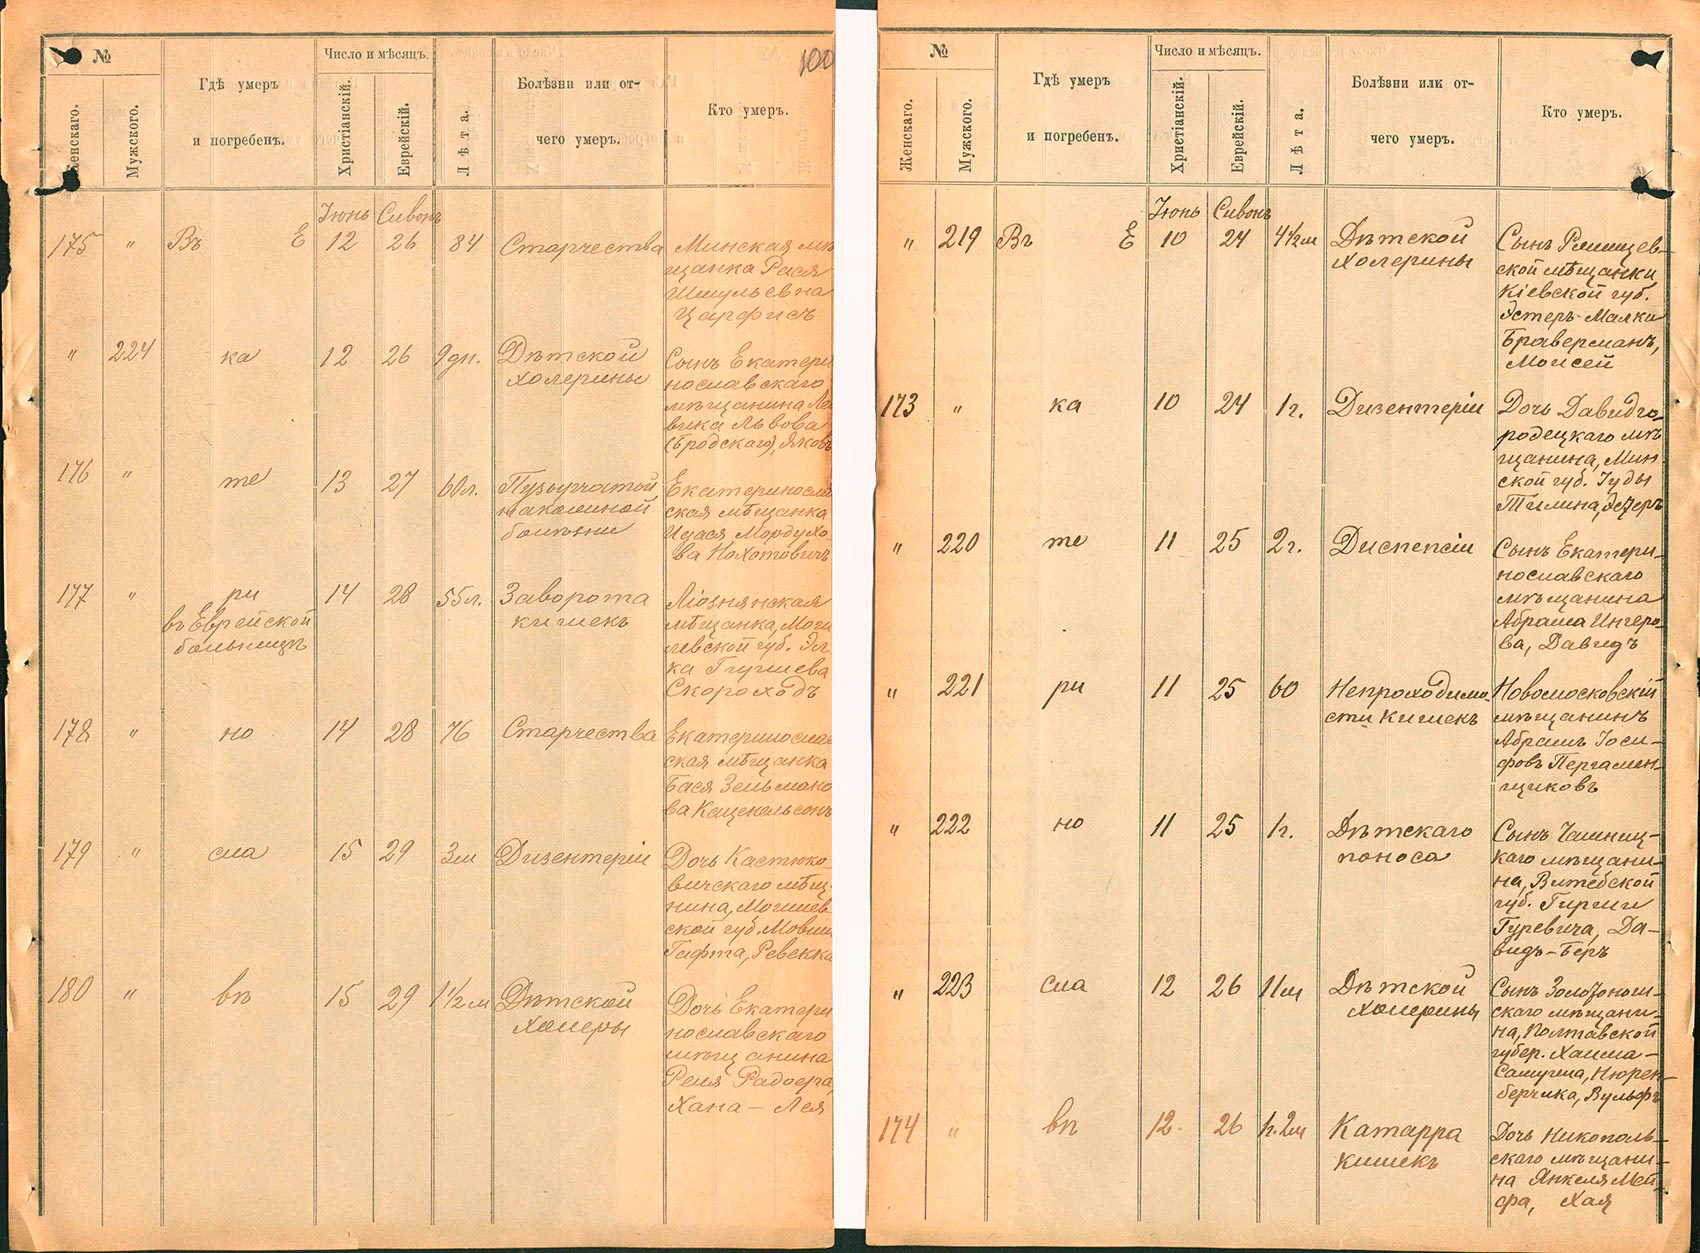 №
Женскаго.
Мужского.
Гдѣ умеръ
и погребенъ.
Число и мѣсяцъ.
Христіанскій.
Еврейскій.
Лѣта.
Болѣзни или от-
чего умеръ.
Кто умеръ.
100
Іюнь Сивонъ
175 " Въ Е 12 26 84 Старчества Минская мѣ
щанка Рася
Шмульевна
Царфисъ
" 224 ка 12 26 9дн. Дѣтской Сынъ Екатери
холерины нославскаго
мѣщанина
вика Львова
(Бродскаго), Яковъ
176 " те 13 27 60л. Пузырчатой Екатериносла
накожной ская мѣщанка
болѣзни Мордухо
ва
177 " ри 14 28 55л. Заворота Ліознянская
въ Еврейской кишекъ мѣщанка, Моги
больницѣ левской губ. Эл
ка
Скороходъ
178 " но 14 28 76 Старчества Екатеринослав
ская мѣщанка
Бася Зельмано
ва Каценельсонъ
179 " сла 15 29 3м Дизентеріи Дочь Кастюко
вичскаго мѣщ
нина, Могилев
ской губ. Мовши
Гифта, Ревекка
180 " вѣ 15 29 1½м Дѣтской Дочь Екатери
холеры нославскаго
мѣщанина
Хана-Лея
№
Женскаго.
Мужского.
Гдѣ умеръ
и погребенъ.
Число и мѣсяцъ.
Христіанскій.
Еврейскій.
Лѣта.
Болѣзни или от-
чего умеръ.
Кто умеръ.
Іюнь Сивонъ
" 219 Въ Е 10 24 4½м Дѣтской Сынъ
холерины ской мѣщанки
Кіевской губ.
Эстеръ-Малки
Браверманъ,
Моисей
173 " ка 10 24 1г. Дизентеріи Дочь Давидго-
родецкаго мѣ
щанина, Мин
ской губ. Іуды
Тилина, Эстеръ
" 220 те 11 25 2г. Диспепсіи Сынъ Екатери-
нославскаго
мѣщанина
Абрама Ингеро-
ва, Давидъ
" 221 ри 11 25 60 Непроходимо- Новомосковскій
сти кишекъ мѣщанинъ
Абрамъ Іоси-
фовъ Пергамен-
щиковъ
" 222 но 11 25 1г. Дѣтскаго Сынъ Чашниц-
поноса каго мѣщани-
на, Витебской
губ. Гирши
Гуревича, Да-
видъ-Беръ
" 223 сла 12 26 11м Дѣтской Сынъ Золотонош-
холерины скаго мѣщани-
на, Полтавской
губер. Хаима-
Самуила, Нюрен-
берчика, Вульфъ
174 " вѣ 12. 26 1г.2м Катарра Дочь Никополь-
кишекъ скаго мѣщани-
на Янкеля Мей-
фа, Хая